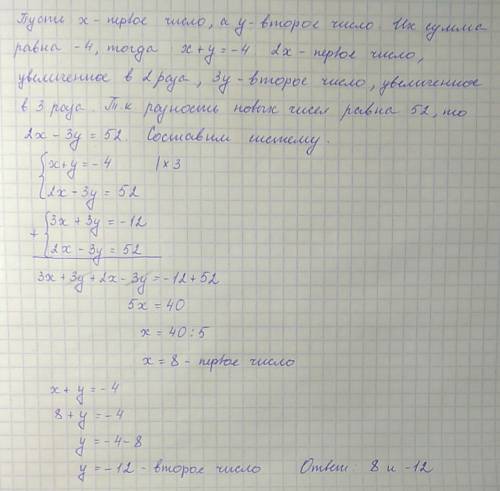 Пусть x - первое число, а y - второе число. Их сумма
равна -4, тогда x+y=-4. 2x - первое число,
увеличенное в 2 раза, 3y - второе число, увеличенное
в 3 раза. Т.к. разность новых чисел равна 52, то
2x-3y=52. Составим систему.
{x+y=-4 |×3
{2x-3y=52
+{3x+3y=-12
{2x-3y=52
3x+3y+2x-3y=-12+52
5x=40
x=40:5
x=8 - первое число
x+y=-4
8+y=-4
y=-4-8
y=-12 - второе число Ответ: 8 и -12